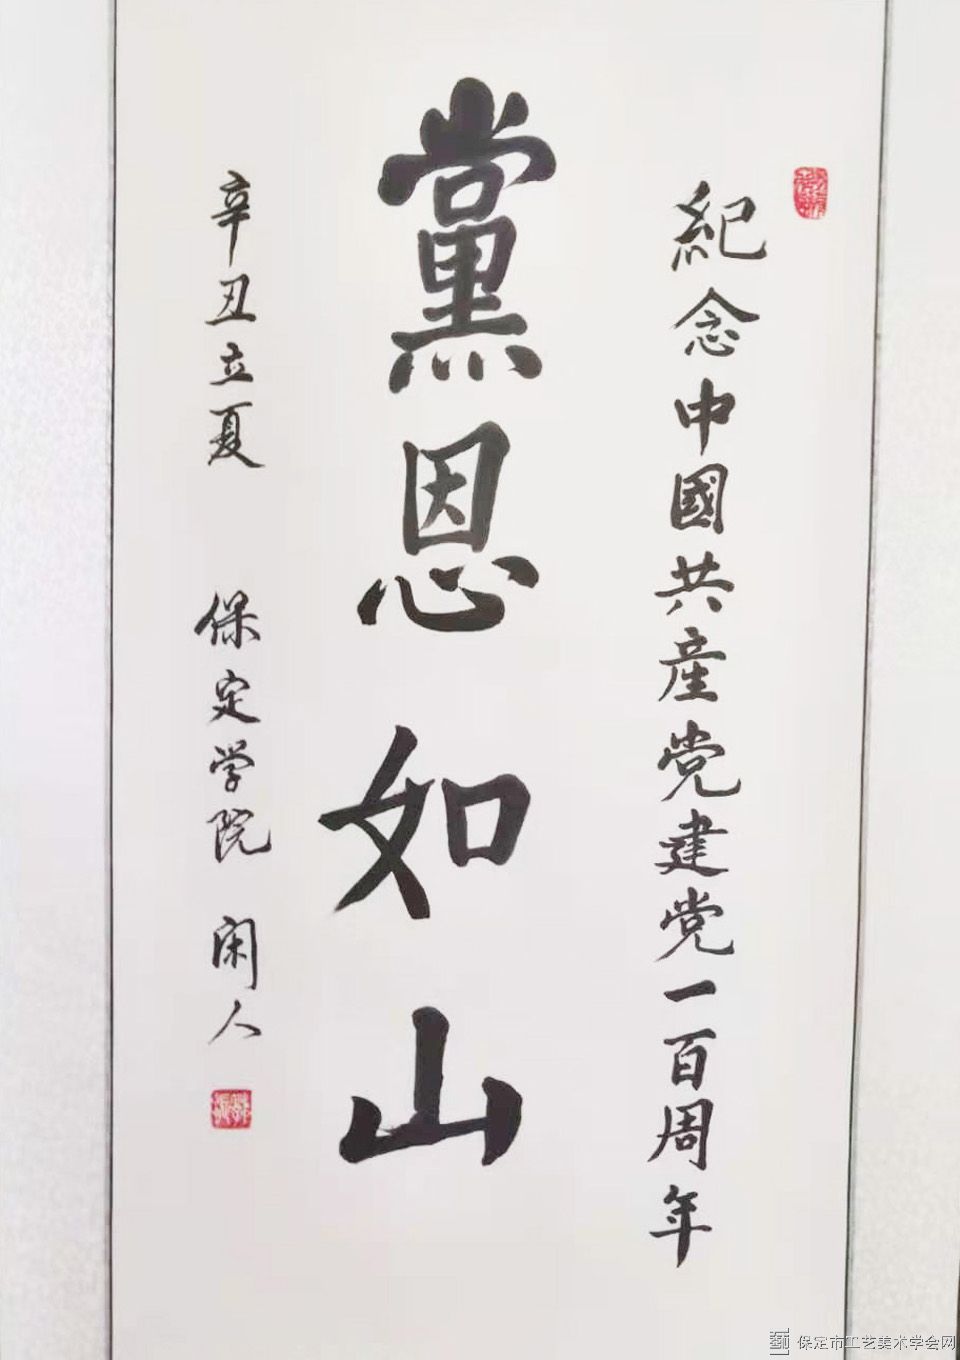 紀念中國共産党建党一百周年
黨恩如山
辛丑立夏 保定学院 闲人
保定市工艺美术学会网